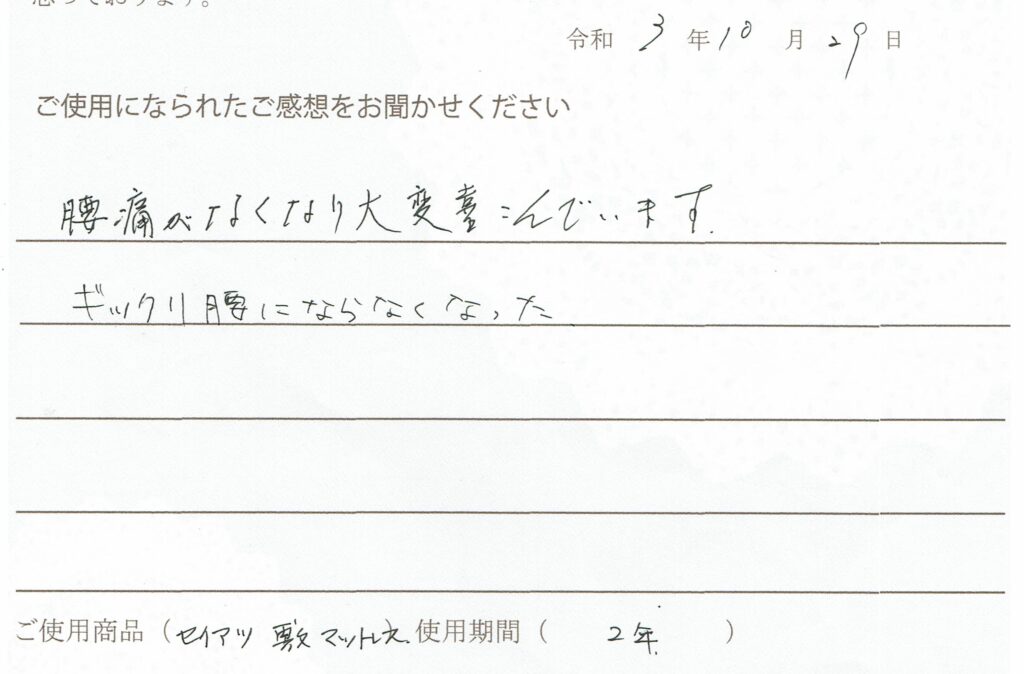 思っております。
令和 3 年 10 月 29 日
ご使用になられたご感想をお聞かせください
腰痛がなくなり大変喜こんでいます.
ギックリ腰にならなくなった
ご使用商品（セイアツ 敷マットレス.使用期間（ 2年. ）